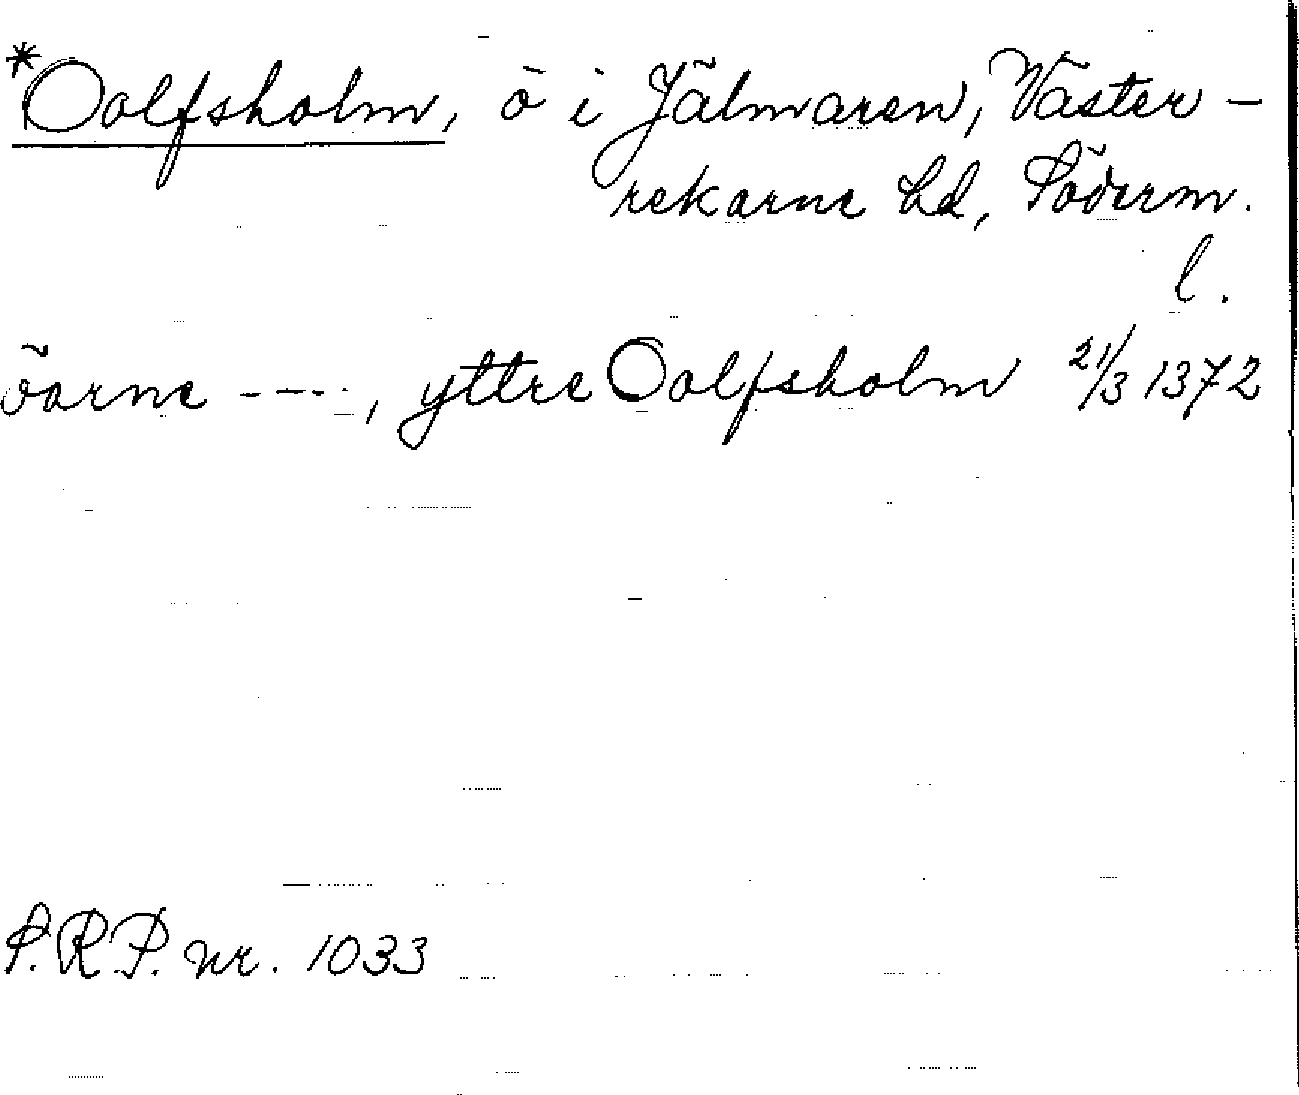 *Oolfsholm, ö i Jälmaren, Väster-
rekarne hd, Söderm.
l.
öarne ---, yttre Oolfsholm 21/3 1372
S.R.P. nr. 1033